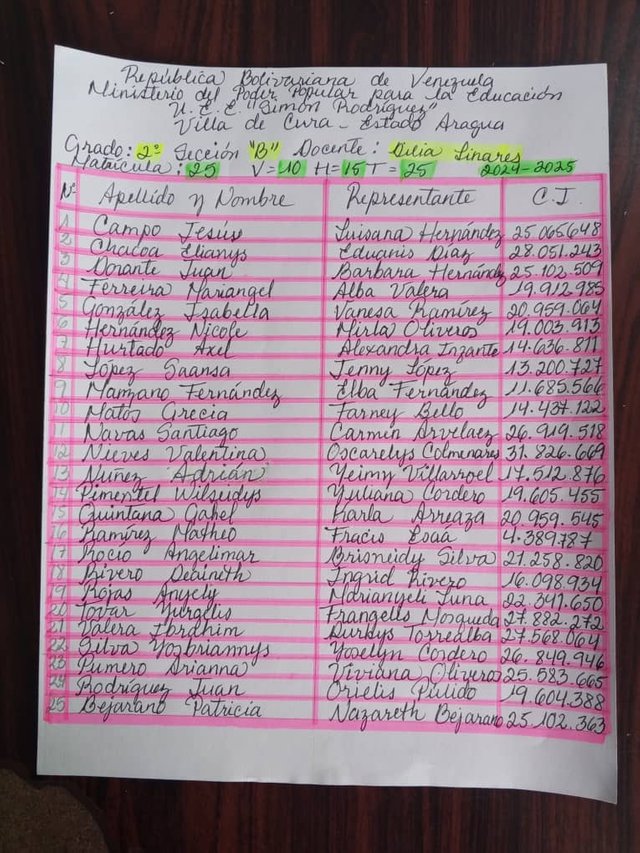 República Bolivariana de Venezuela
Ministerio del Poder Popular para la Educación
U.E.E "Simón Rodríguez"
Villa de Cura - Estado Aragua
Grado: 2º Sección "B" Docente: Dilia Linares
Matrícula: 25 V=10 H=15 T=25 2024-2025
Nº Apellido y Nombre Representante C.I.
1 Campo Jesús Luisana Hernández 25.065.648
2 Chacoa Elianys Eduanis Díaz 28.051.243
3 Dorante Juan Barbara Hernández 25.102.509
4 Ferreira Mariangel Alba Valera 19.912.985
5 González Isabella Vanesa Ramírez 20.959.064
6 Hernández Nicole Mirla Oliveros 19.003.913
7 Hurtado Axel Alexandra Inzante 14.636.811
8 López Saansa Jenny López 13.200.727
9 Manzano Fernández Elba Fernández 11.685.566
10 Matos Grecia Farney Bello 14.437.122
11 Navas Santiago Carmin Arvelaez 26.919.518
12 Nieves Valentina Oscarelys Colmenares 31.826.669
13 Nuñez Adrián Yeimy Villarroel 17.512.876
14 Pimentel Wilseidys Yuliana Cordero 19.605.455
15 Quintana Gabel Karla Arreaza 20.959.545
16 Ramírez Matheo Fracis Esaá 4.389787
17 Rocio Angelimar Brisneidy Silva 21.258.820
18 Rivero Ingrid Rivero 16.098.934
19 Rojas Anyely Marianyeli Luna 22.341.650
20 Tovar Yurgelis Frangelis Mosqueda 27.882.272
21 Valera Ibrahim Durbys Torrealba 27.568.064
22 Silva Yosbriannys Yoselyn Cordero 26.849.946
23 Pumero Arianna Viviana Oliveros 25.583.665
24 Rodríguez Juan Orielis Pulido 19.604.388
25 Bejarano Patricia Nazareth Bejarano 25.102.363